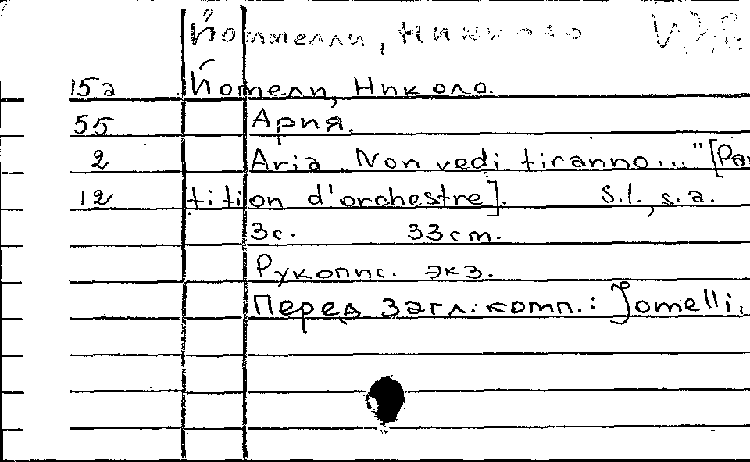 Йоммелли, Никколо
15а Йомели, Николо.
55 Ария.
2 Aria „Non vedi tiranno..." [Par
12 tition d'orchestre]. S.l., s.a.
3с. 33cm.
Рукопис. экз.
Перед загл. комп.: Jomelli.